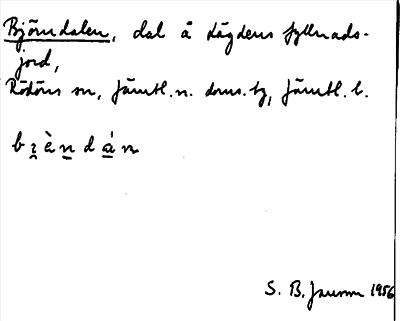 Björndalen, dal å Hägdens fyllnads-
jord,
Rödöns sn, Jämtl. n. doms.tg, Jämtl. l.
S. B. Jansson 1956